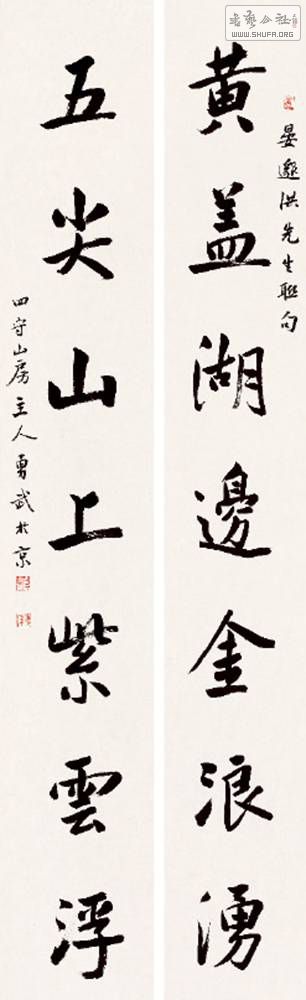 黄盖湖邊金浪湧
晏遨洪先生聯句
五尖山上紫雲浮
四守山房主人勇武於京
書艺公社
WWW.SHUFA.ORG